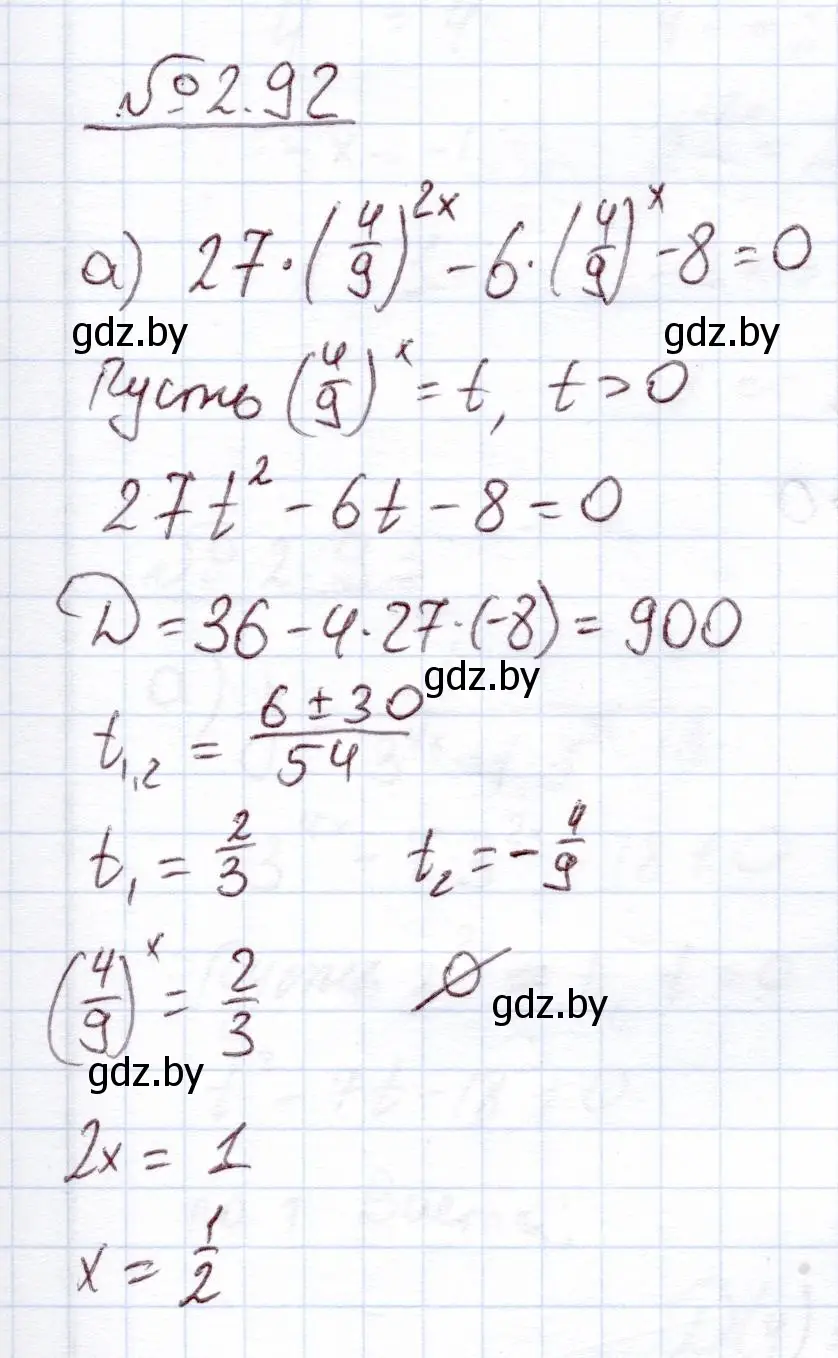 №2.92
а) 27·(4/9)^2x - 6·(4/9)^x - 8 = 0
gdz.by gdz.by
Пусть (4/9)^x = t, t > 0
27t² - 6t - 8 = 0
D = 36 - 4·27·(-8) = 900
gdz.by
t₁,₂ = (6 ± 30)/54
t₁ = 2/3 t₂ = -4/9
(4/9)^x = 2/3 ∅ gdz.by
gdz.by
2x = 1
x = 1/2